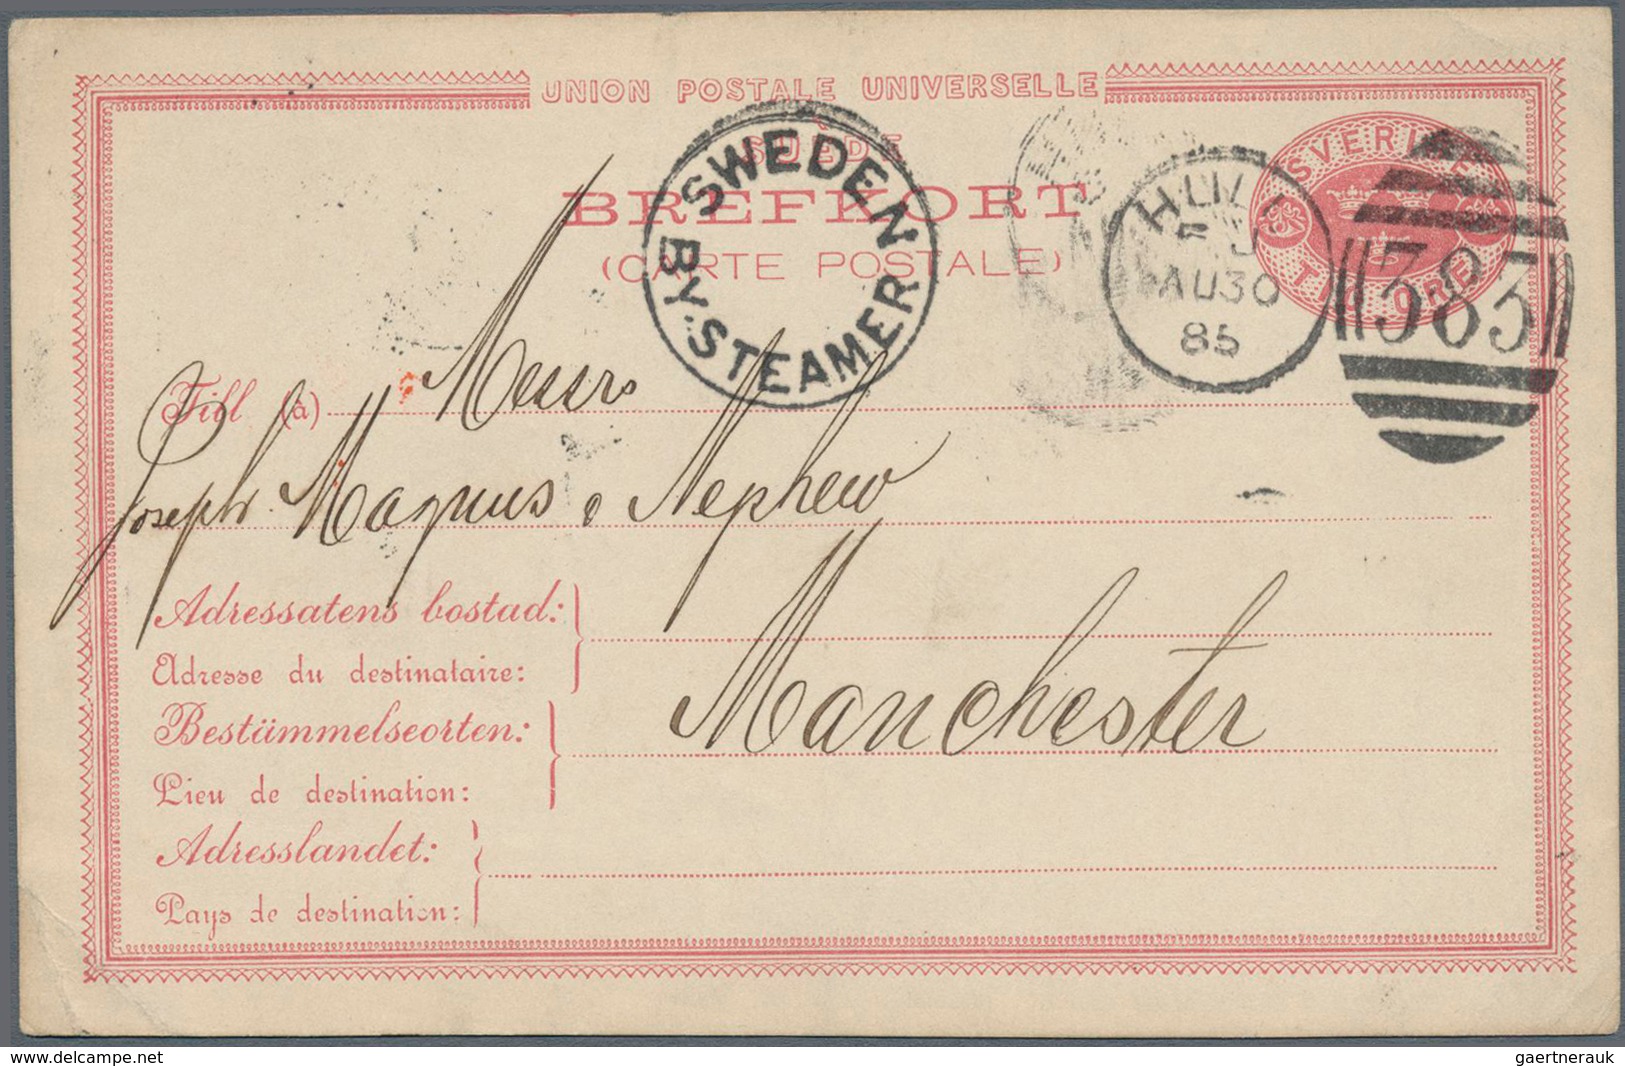 UNION POSTALE UNIVERSELLE
SUÈDE
BREFKORT
(CARTE POSTALE)
SWEDEN
BY·STEAMER
HULL
AU30
85
383
SVERIGE
TIO ÖRE
Till (à) Messrs
Joseph Magnus & Nephew
Adressatens bostad:
Adresse du destinataire:
Manchester
Bestämmelseorten:
Lieu de destination:
Adresslandet:
Pays de destination:
www.delcampe.net
gaertnerauk